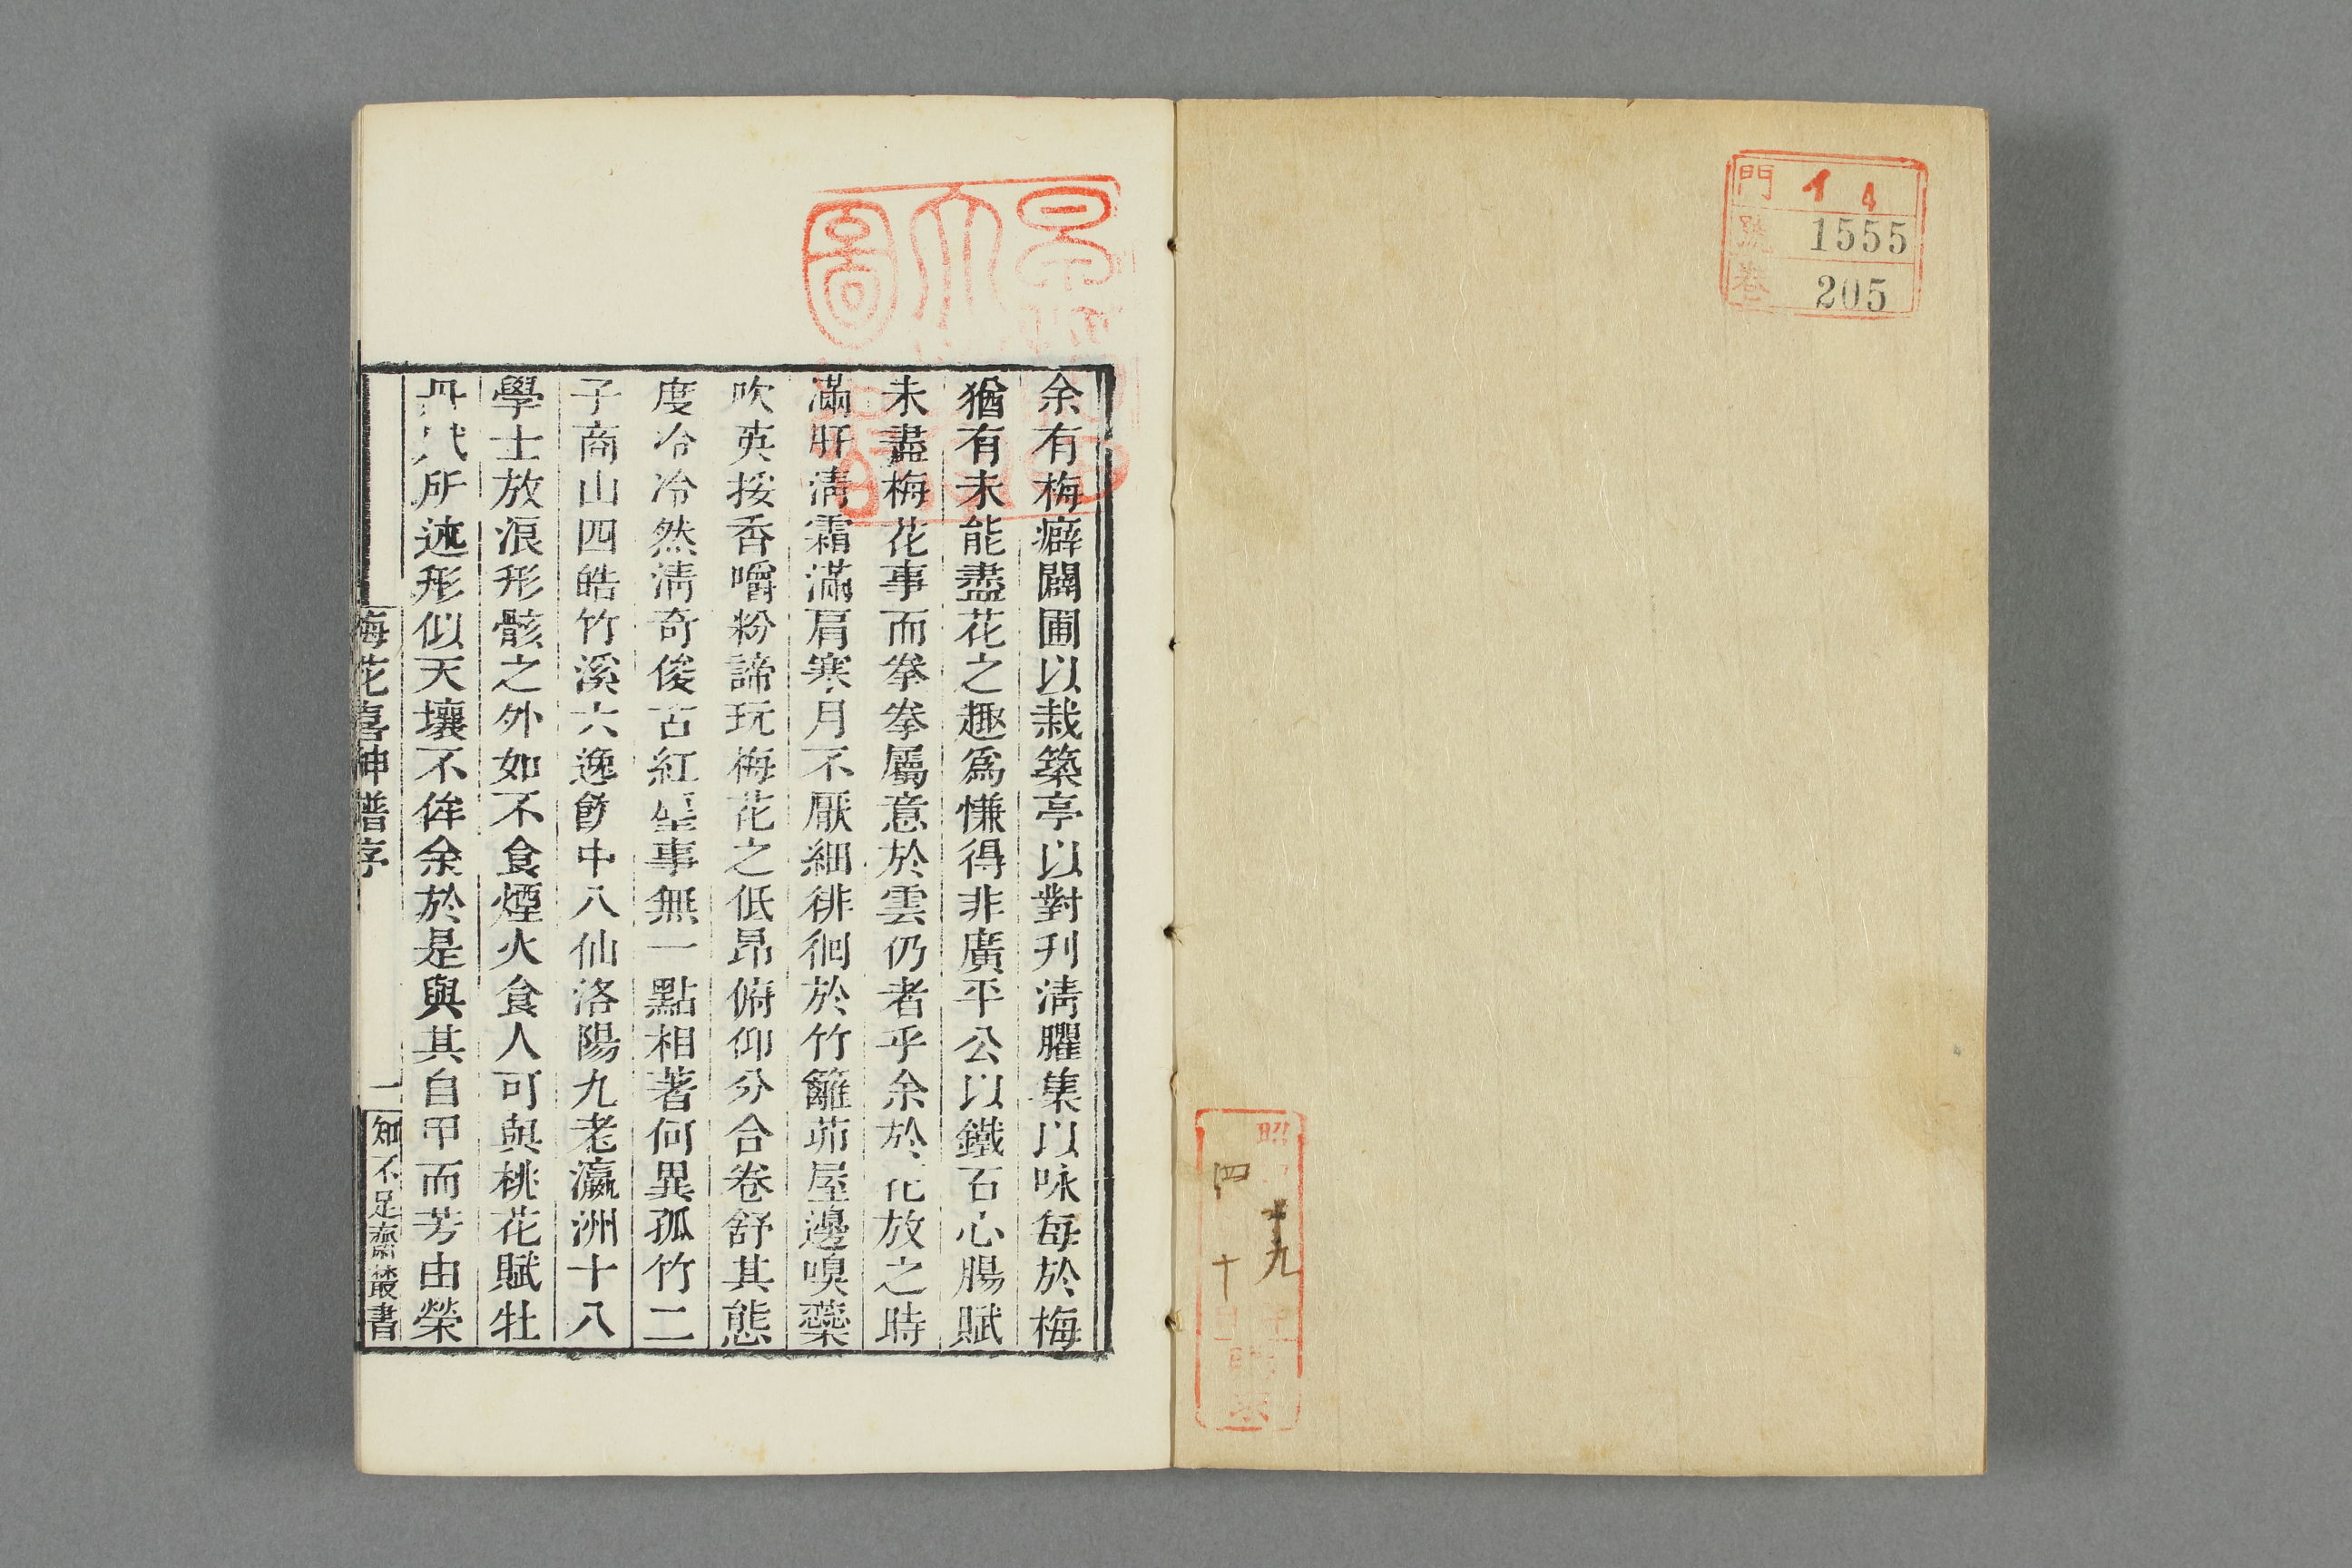 門 イ 4
號 1555
卷 205
昭
九
四
十
余有梅癖闢圃以栽築亭以對刊淸臞集以咏每於梅
猶有未能盡花之趣爲慊得非廣平公以鐵石心腸賦
未盡梅花事而拳拳屬意於雲仍者乎余於花放之時
滿肝淸霜滿肩寒月不厭細徘徊於竹籬茆屋邊嗅蘂
吹英挼香嚼粉諦玩梅花之低昂俯仰分合卷舒其態
度冷冷然淸奇俊古紅塵事無一點相著何異孤竹二
子商山四皓竹溪六逸飮中八仙洛陽九老瀛洲十八
學士放浪形骸之外如不食煙火食人可與桃花賦牡
丹賦所述形似天壤不侔余於是與其自甲而芳由榮
梅花喜神譜序
一
知不足齋叢書